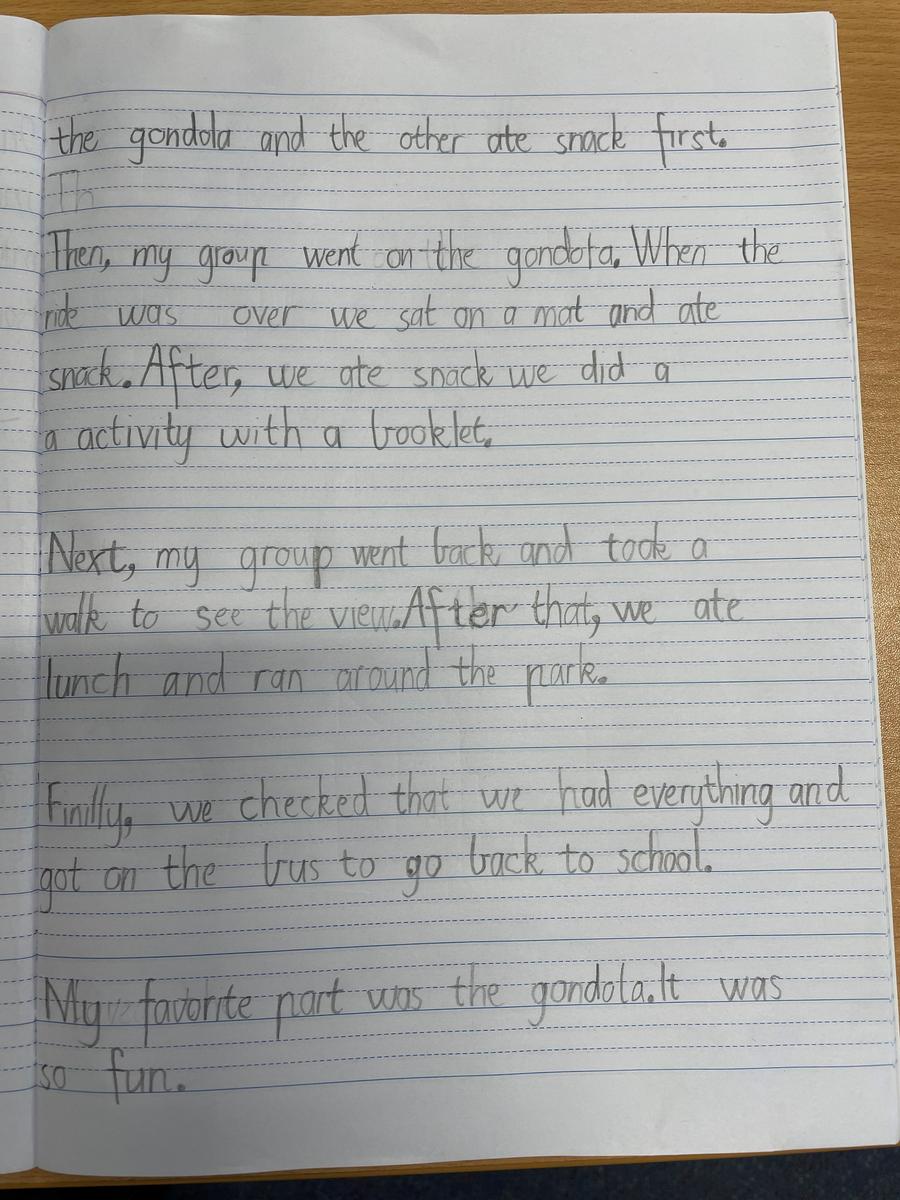 the gondola and the other ate snack first.
Th
Then, my group went on the gondola. When the
ride was over we sat on a mat and ate
snack. After, we ate snack we did a
a activity with a booklet.
Next, my group went back and took a
walk to see the view. After that, we ate
lunch and ran around the park.
Finilly, we checked that we had everything and
got on the bus to go back to school.
My favorite part was the gondola. It was
so fun.